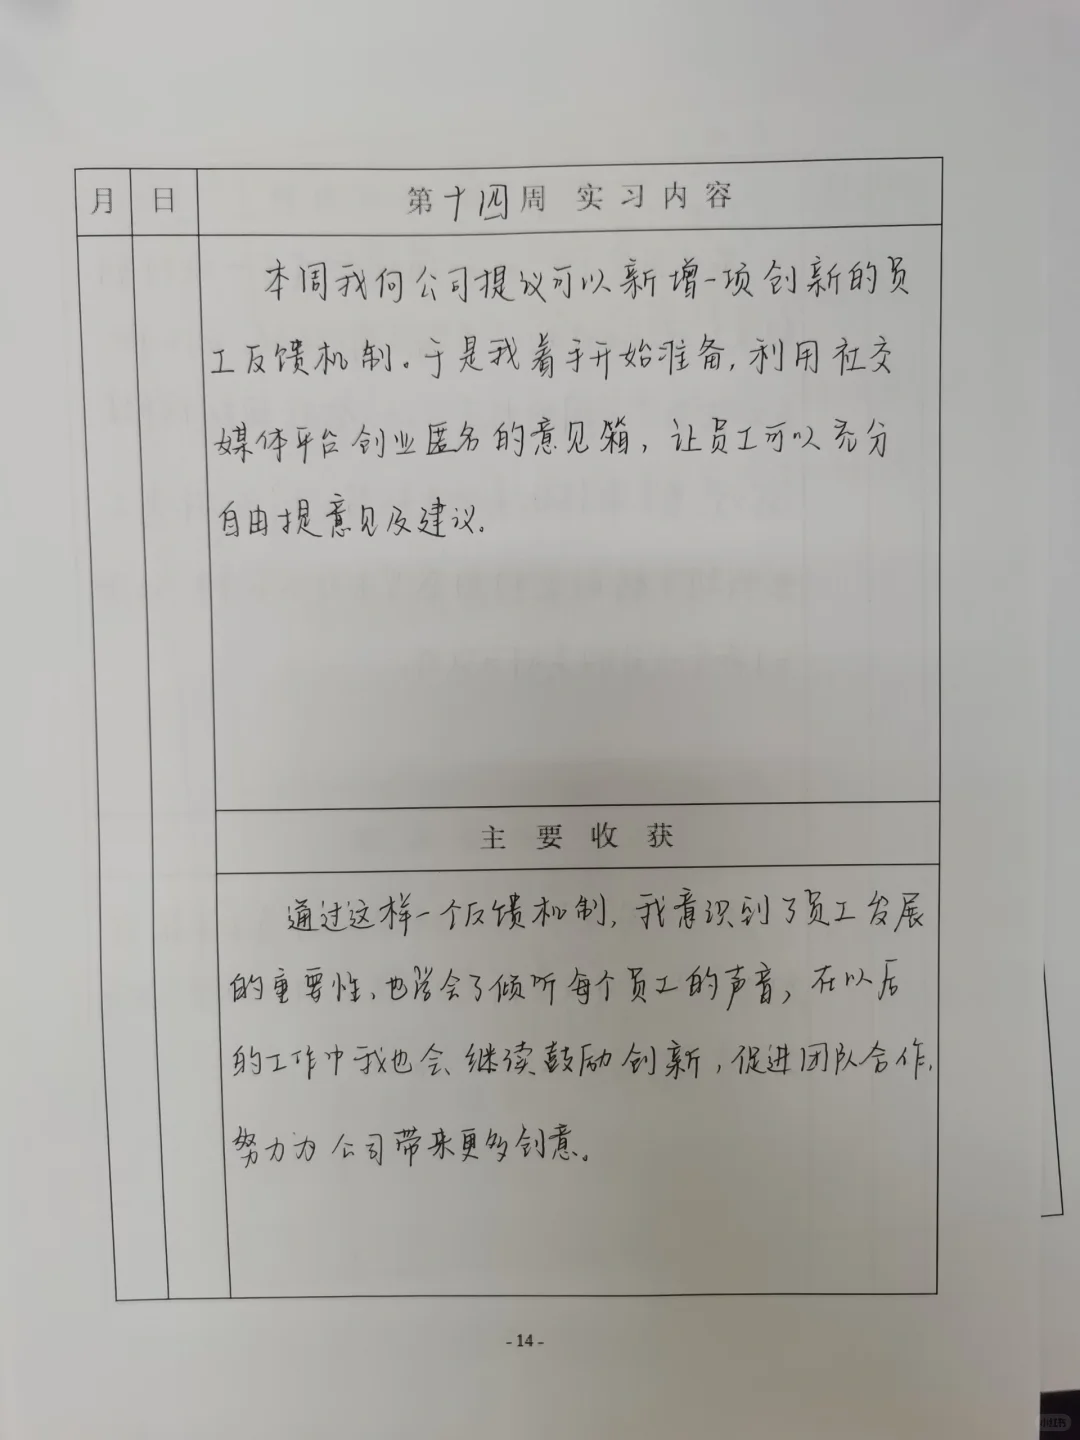 月 日 第十四周 实习内容
本周我向公司提议可以新增一项创新的员
工反馈机制。于是我着手开始准备,利用社交
媒体平台创业匿名的意见箱,让员工可以充分
自由提意见及建议。
主要收获
通过这样一个反馈机制,我意识到了员工发展
的重要性、也学会了倾听每个员工的声音,在以后
的工作中我也会继续鼓励创新,促进团队合作,
努力为公司带来更多创意。
- 14 -
小红书